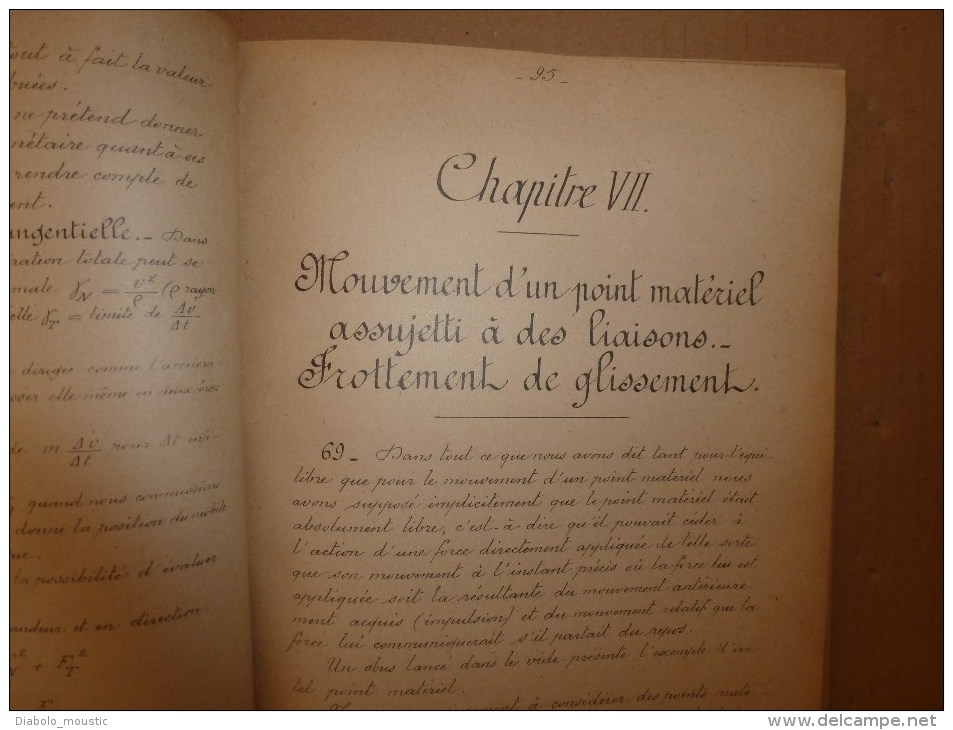 tout à fait la valeur
buées.
ne prétend donner
nétaire quant à ses
rendre compte de
ent.
angentielle._ Dans
ration totale peut se
male γN = v²/ρ (ρ rayon
elle γT = limite de Δv/Δt
dirigée comme l'accéléra
oser elle-même en deux
de m Δv/Δt pour Δt infi-
quand nous connaissons
donne la position du mobile
que.
la possibilité d'évaluer
andeur et en direction
N² + FT²
- 95 -
Chapitre VII.
Mouvement d'un point matériel
assujetti à des liaisons._
Frottement de glissement.
69_ Dans tout ce que nous avons dit tant pour l'équi
libre que pour le mouvement d'un point matériel nous
avons supposé implicitement que le point matériel était
absolument libre, c'est-à dire qu'il pouvait céder à
l'action d'une force directement appliquée de telle sorte
que son mouvement à l'instant précis où la force lui est
appliquée soit la résultante du mouvement antérieure
ment acquis (impulsion) et du mouvement relatif que la
force lui communiquerait s'il partait du repos.
Un obus lancé dans le vide présente l'exemple d'un
tel point matériel.
à considérer des points maté
Diabolo_moustic
www.delcampe.net